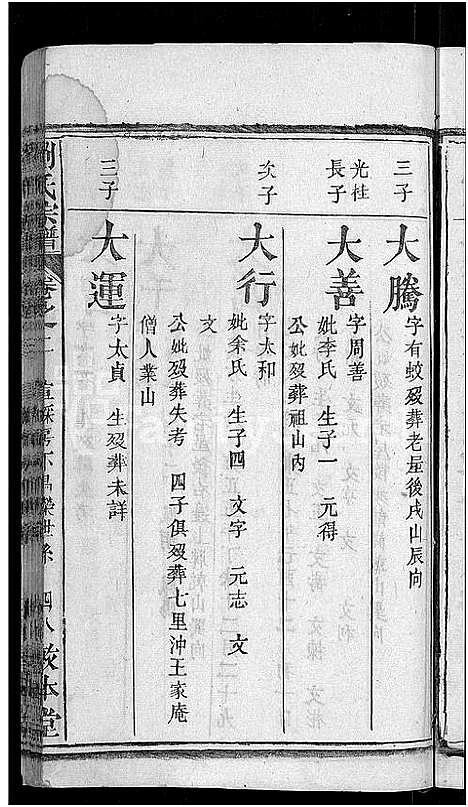 三子
大騰
字有蛟歿葬老屋後戌山辰向
光柱
長子
大善
字周善
妣李氏 生子一 元得
公妣歿葬祖山內
次子
大行
字太和
妣余氏 生子四 文字 元志 文
文
公妣歿葬失考 四子俱歿葬七里沖王家庵
僧人業山
三子
大運
字太貞 生歿葬未詳
劉氏宗譜 卷之二 世系 四八 校本堂